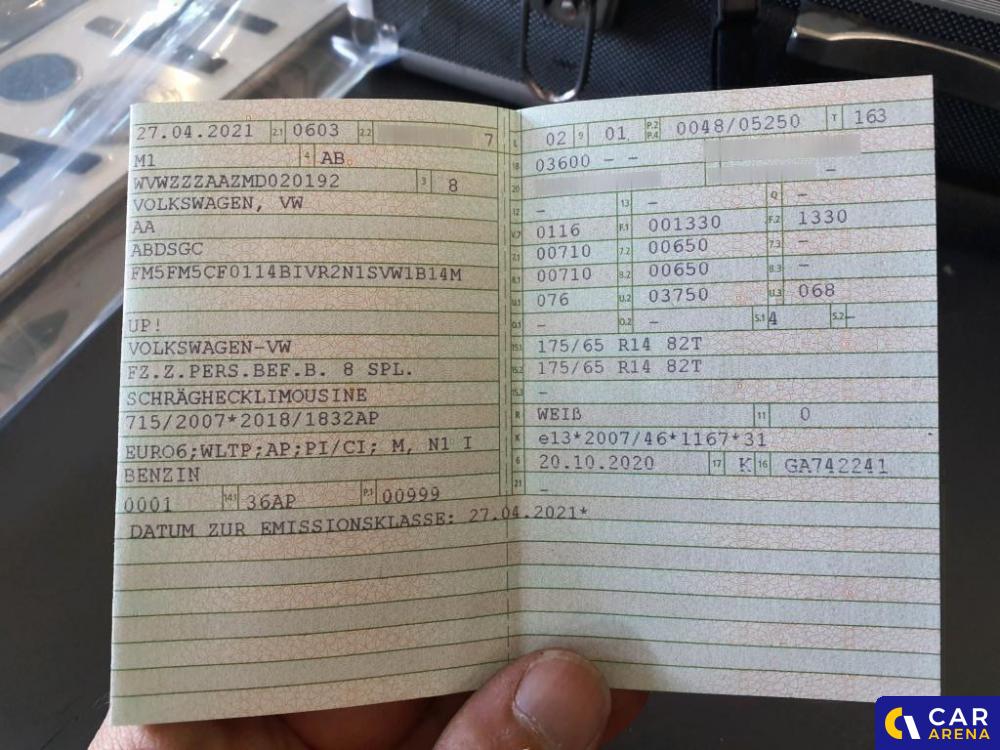 27.04.2021 2.1 0603 2.2 7
M1 4 AB
WVWZZZAAZMD020192 3 8
VOLKSWAGEN, VW
AA
ABDSGC
FM5FM5CF0114BIVR2N1SVW1B14M
UP!
VOLKSWAGEN-VW
FZ.Z.PERS.BEF.B. 8 SPL.
SCHRÄGHECKLIMOUSINE
715/2007*2018/1832AP
EURO6;WLTP;AP;PI/CI; M, N1 I
BENZIN
0001 14.1 36AP P.1 00999
DATUM ZUR EMISSIONSKLASSE: 27.04.2021*
L 02 9 01 P.2 P.4 0048/05250 T 163
18 03600 - -
20 -
12 - 13 - Q -
V.7 0116 F.1 001330 F.2 1330
7.1 00710 7.2 00650 7.3 -
8.1 00710 8.2 00650 8.3 -
U.1 076 U.2 03750 U.3 068
O.1 - O.2 - S.1 4 S.2 -
15.1 175/65 R14 82T
15.2 175/65 R14 82T
15.3 -
R WEIß 11 0
K e13*2007/46*1167*31
6 20.10.2020 17 K 16 GA742241
21 -
CAR
ARENA